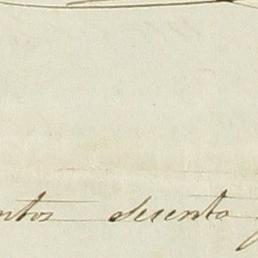 ntos sesenta